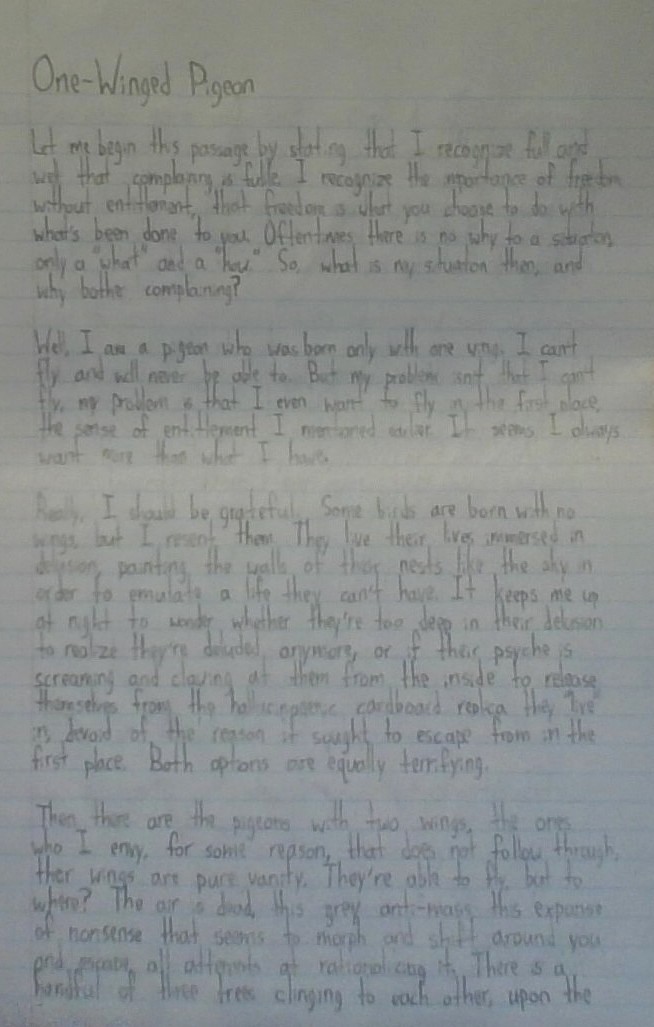 One-Winged Pigeon
Let me begin this passage by stating that I recognize full and
well that complaining is futile. I recognize the importance of freedom
without entitlement, that freedom is what you choose to do with
what's been done to you. Oftentimes there is no why to a situation,
only a "what" and a "how." So, what is my situation then, and
why bother complaining?
Well, I am a pigeon who was born only with one wing. I can't
fly and will never be able to. But my problem isnt that I can't
fly, my problem is that I even want to fly in the first place,
the sense of entitlement I mentioned earlier. It seems I always
want more than what I have.
Really, I should be grateful. Some birds are born with no
wings, but I resent them. They live their lives immersed in
delusion, painting the walls of their nests like the sky in
order to emulate a life they can't have. It keeps me up
at night to wonder whether they're too deep in their delusion
to realize they're deluded, anymore, or if their psyche is
screaming and clawing at them from the inside to release
themselves from the cardboard replica they "live"
in, devoid of the reason it sought to escape from in the
first place. Both options are equally terrifying.
Then, there are the pigeons with two wings, the ones
who I envy, for some reason, that does not follow through,
their wings are pure vanity. They're able to fly, but to
where? The air is dead, this grey anti-mass, this expanse
of nonsense that seems to morph and shift around you
and escape all attempts at rationalizing it. There is a
handful of three trees clinging to each other, upon the